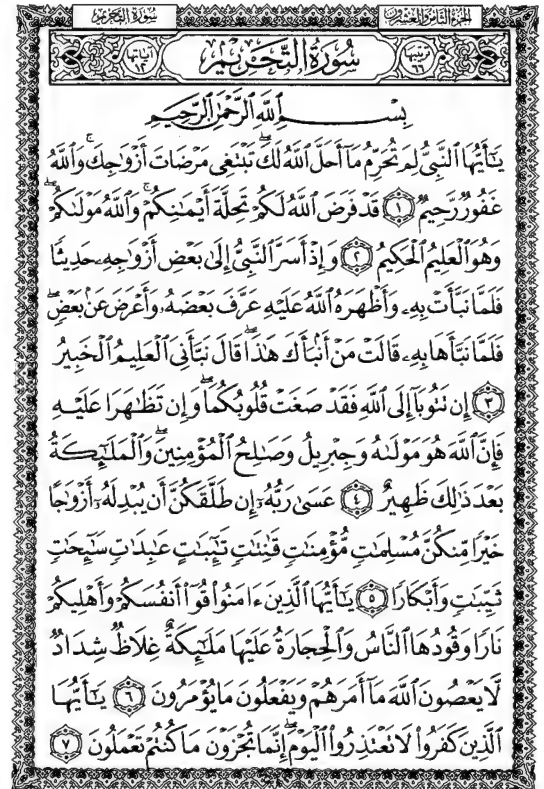 سُورَةُ التَّحْرِيمِ الجُزْءُ الثَّامِنُ وَالعِشْرُونَ
ترتيبها ٦٦ سُورَةُ التَّحْرِيمِ آياتها ١٢
بِسْمِ ٱللَّهِ ٱلرَّحْمَٰنِ ٱلرَّحِيمِ
يَٰٓأَيُّهَا ٱلنَّبِىُّ لِمَ تُحَرِّمُ مَآ أَحَلَّ ٱللَّهُ لَكَۖ تَبْتَغِى مَرْضَاتَ أَزْوَٰجِكَۚ وَٱللَّهُ
غَفُورٌ رَّحِيمٌ ۝١ قَدْ فَرَضَ ٱللَّهُ لَكُمْ تَحِلَّةَ أَيْمَٰنِكُمْۚ وَٱللَّهُ مَوْلَىٰكُمْۖ
وَهُوَ ٱلْعَلِيمُ ٱلْحَكِيمُ ۝٢ وَإِذْ أَسَرَّ ٱلنَّبِىُّ إِلَىٰ بَعْضِ أَزْوَٰجِهِۦ حَدِيثًا
فَلَمَّا نَبَّأَتْ بِهِۦ وَأَظْهَرَهُ ٱللَّهُ عَلَيْهِ عَرَّفَ بَعْضَهُۥ وَأَعْرَضَ عَنۢ بَعْضٍۖ
فَلَمَّا نَبَّأَهَا بِهِۦ قَالَتْ مَنْ أَنۢبَأَكَ هَٰذَاۖ قَالَ نَبَّأَنِىَ ٱلْعَلِيمُ ٱلْخَبِيرُ
۝٣ إِن تَتُوبَآ إِلَى ٱللَّهِ فَقَدْ صَغَتْ قُلُوبُكُمَاۖ وَإِن تَظَٰهَرَا عَلَيْهِ
فَإِنَّ ٱللَّهَ هُوَ مَوْلَىٰهُ وَجِبْرِيلُ وَصَٰلِحُ ٱلْمُؤْمِنِينَۖ وَٱلْمَلَٰٓئِكَةُ
بَعْدَ ذَٰلِكَ ظَهِيرٌ ۝٤ عَسَىٰ رَبُّهُۥٓ إِن طَلَّقَكُنَّ أَن يُبْدِلَهُۥٓ أَزْوَٰجًا
خَيْرًا مِّنكُنَّ مُسْلِمَٰتٍ مُّؤْمِنَٰتٍ قَٰنِتَٰتٍ تَٰٓئِبَٰتٍ عَٰبِدَٰتٍ سَٰٓئِحَٰتٍ
ثَيِّبَٰتٍ وَأَبْكَارًا ۝٥ يَٰٓأَيُّهَا ٱلَّذِينَ ءَامَنُوا۟ قُوٓا۟ أَنفُسَكُمْ وَأَهْلِيكُمْ
نَارًا وَقُودُهَا ٱلنَّاسُ وَٱلْحِجَارَةُ عَلَيْهَا مَلَٰٓئِكَةٌ غِلَاظٌ شِدَادٌ
لَّا يَعْصُونَ ٱللَّهَ مَآ أَمَرَهُمْ وَيَفْعَلُونَ مَا يُؤْمَرُونَ ۝٦ يَٰٓأَيُّهَا
ٱلَّذِينَ كَفَرُوا۟ لَا تَعْتَذِرُوا۟ ٱلْيَوْمَۖ إِنَّمَا تُجْزَوْنَ مَا كُنتُمْ تَعْمَلُونَ ۝٧